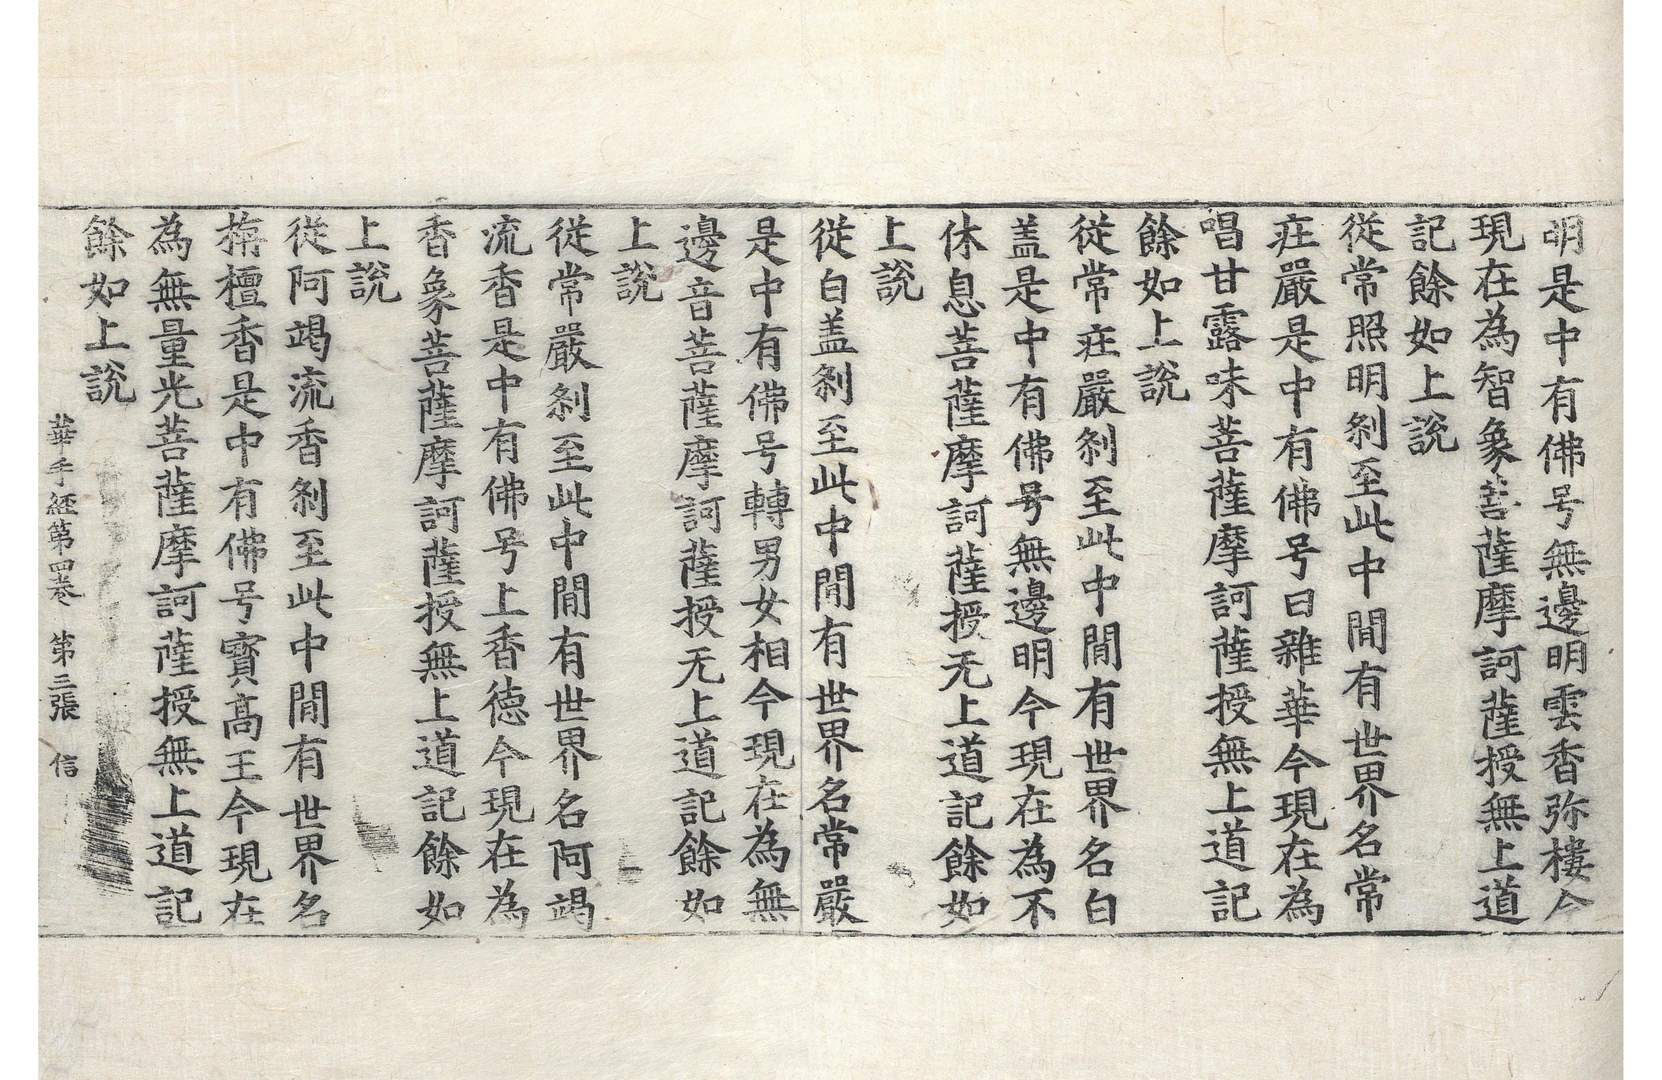 明是中有佛号無邊明雲香弥樓今
現在為智象菩薩摩訶薩授無上道
記餘如上說
從常照明刹至此中間有世界名常
庄嚴是中有佛号曰雜華今現在為
唱甘露味菩薩摩訶薩授無上道記
餘如上說
從常庄嚴刹至此中間有世界名白
盖是中有佛号無邊明今現在為不
休息菩薩摩訶薩授无上道記餘如
上說
從白盖刹至此中間有世界名常嚴
是中有佛号轉男女相今現在為無
邊音菩薩摩訶薩授无上道記餘如
上說
從常嚴刹至此中間有世界名阿竭
流香是中有佛号上香德今現在為
香象菩薩摩訶薩授無上道記餘如
上說
從阿竭流香刹至此中間有世界名
栴檀香是中有佛号寶高王今現在
為無量光菩薩摩訶薩授無上道記
餘如上說
華手經第四卷 第三張 信